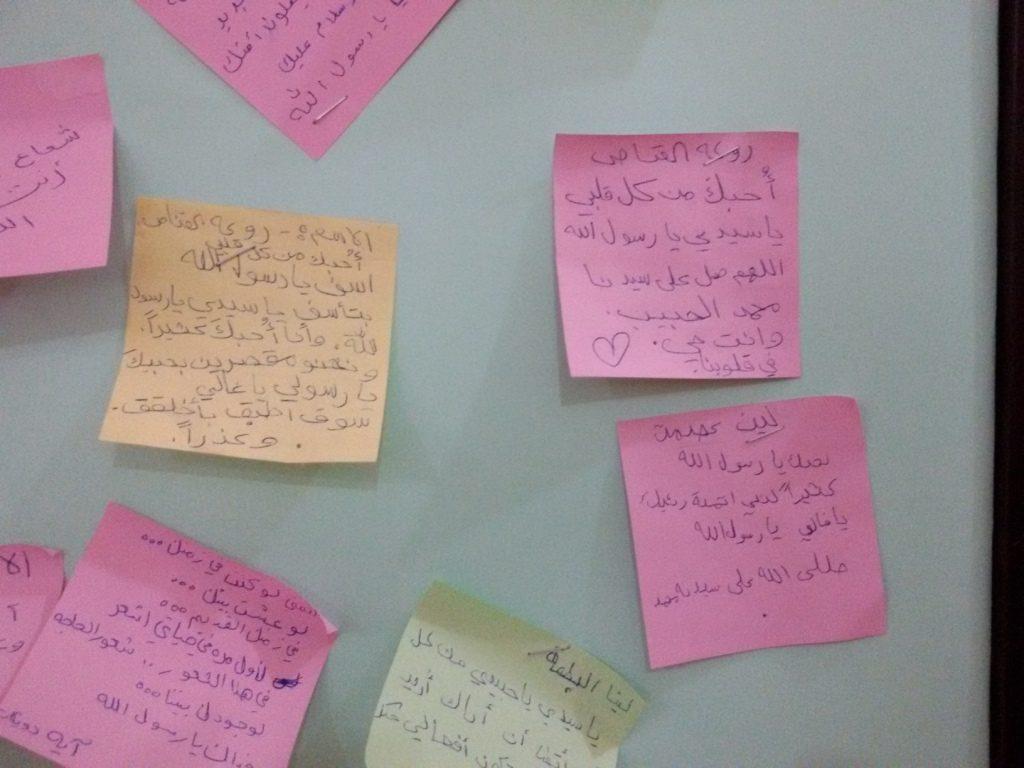 السلام عليك
يا رسول الله
شعاع
الاسم :- روعه القناص
أحبك من كل قلبي
اسف يا رسول الله
بتأسف يا سيدي يا رسول
لله. وأنا أحبك كثيراً.
ونحنو مقصرين بحبك
يا رسولي يا غالي
سوف اطبق بأخلقق.
وعذراً.
روعه القناص
أحبك من كل قلبي
يا سيدي يا رسول الله
اللهم صل على سيدنا
محمد الحبيب.
وانت حي.
في قلوبنا.
لين
نحبك يا رسول الله
كثيراً
يا رسول الله
صللى الله على سيدنا محمد
لو كنت في زمن ...
لو عشت بينك ...
في زمن القديم ...
لأول مرة في حياتي اشعر
في هذا الشعور .. شعور الحاجه
لوجودك بيننا ...
يا رسول الله
آية
لينا
يا سيدي يا حبيبي من كل
أن أراك أريد
تكون أفعالي